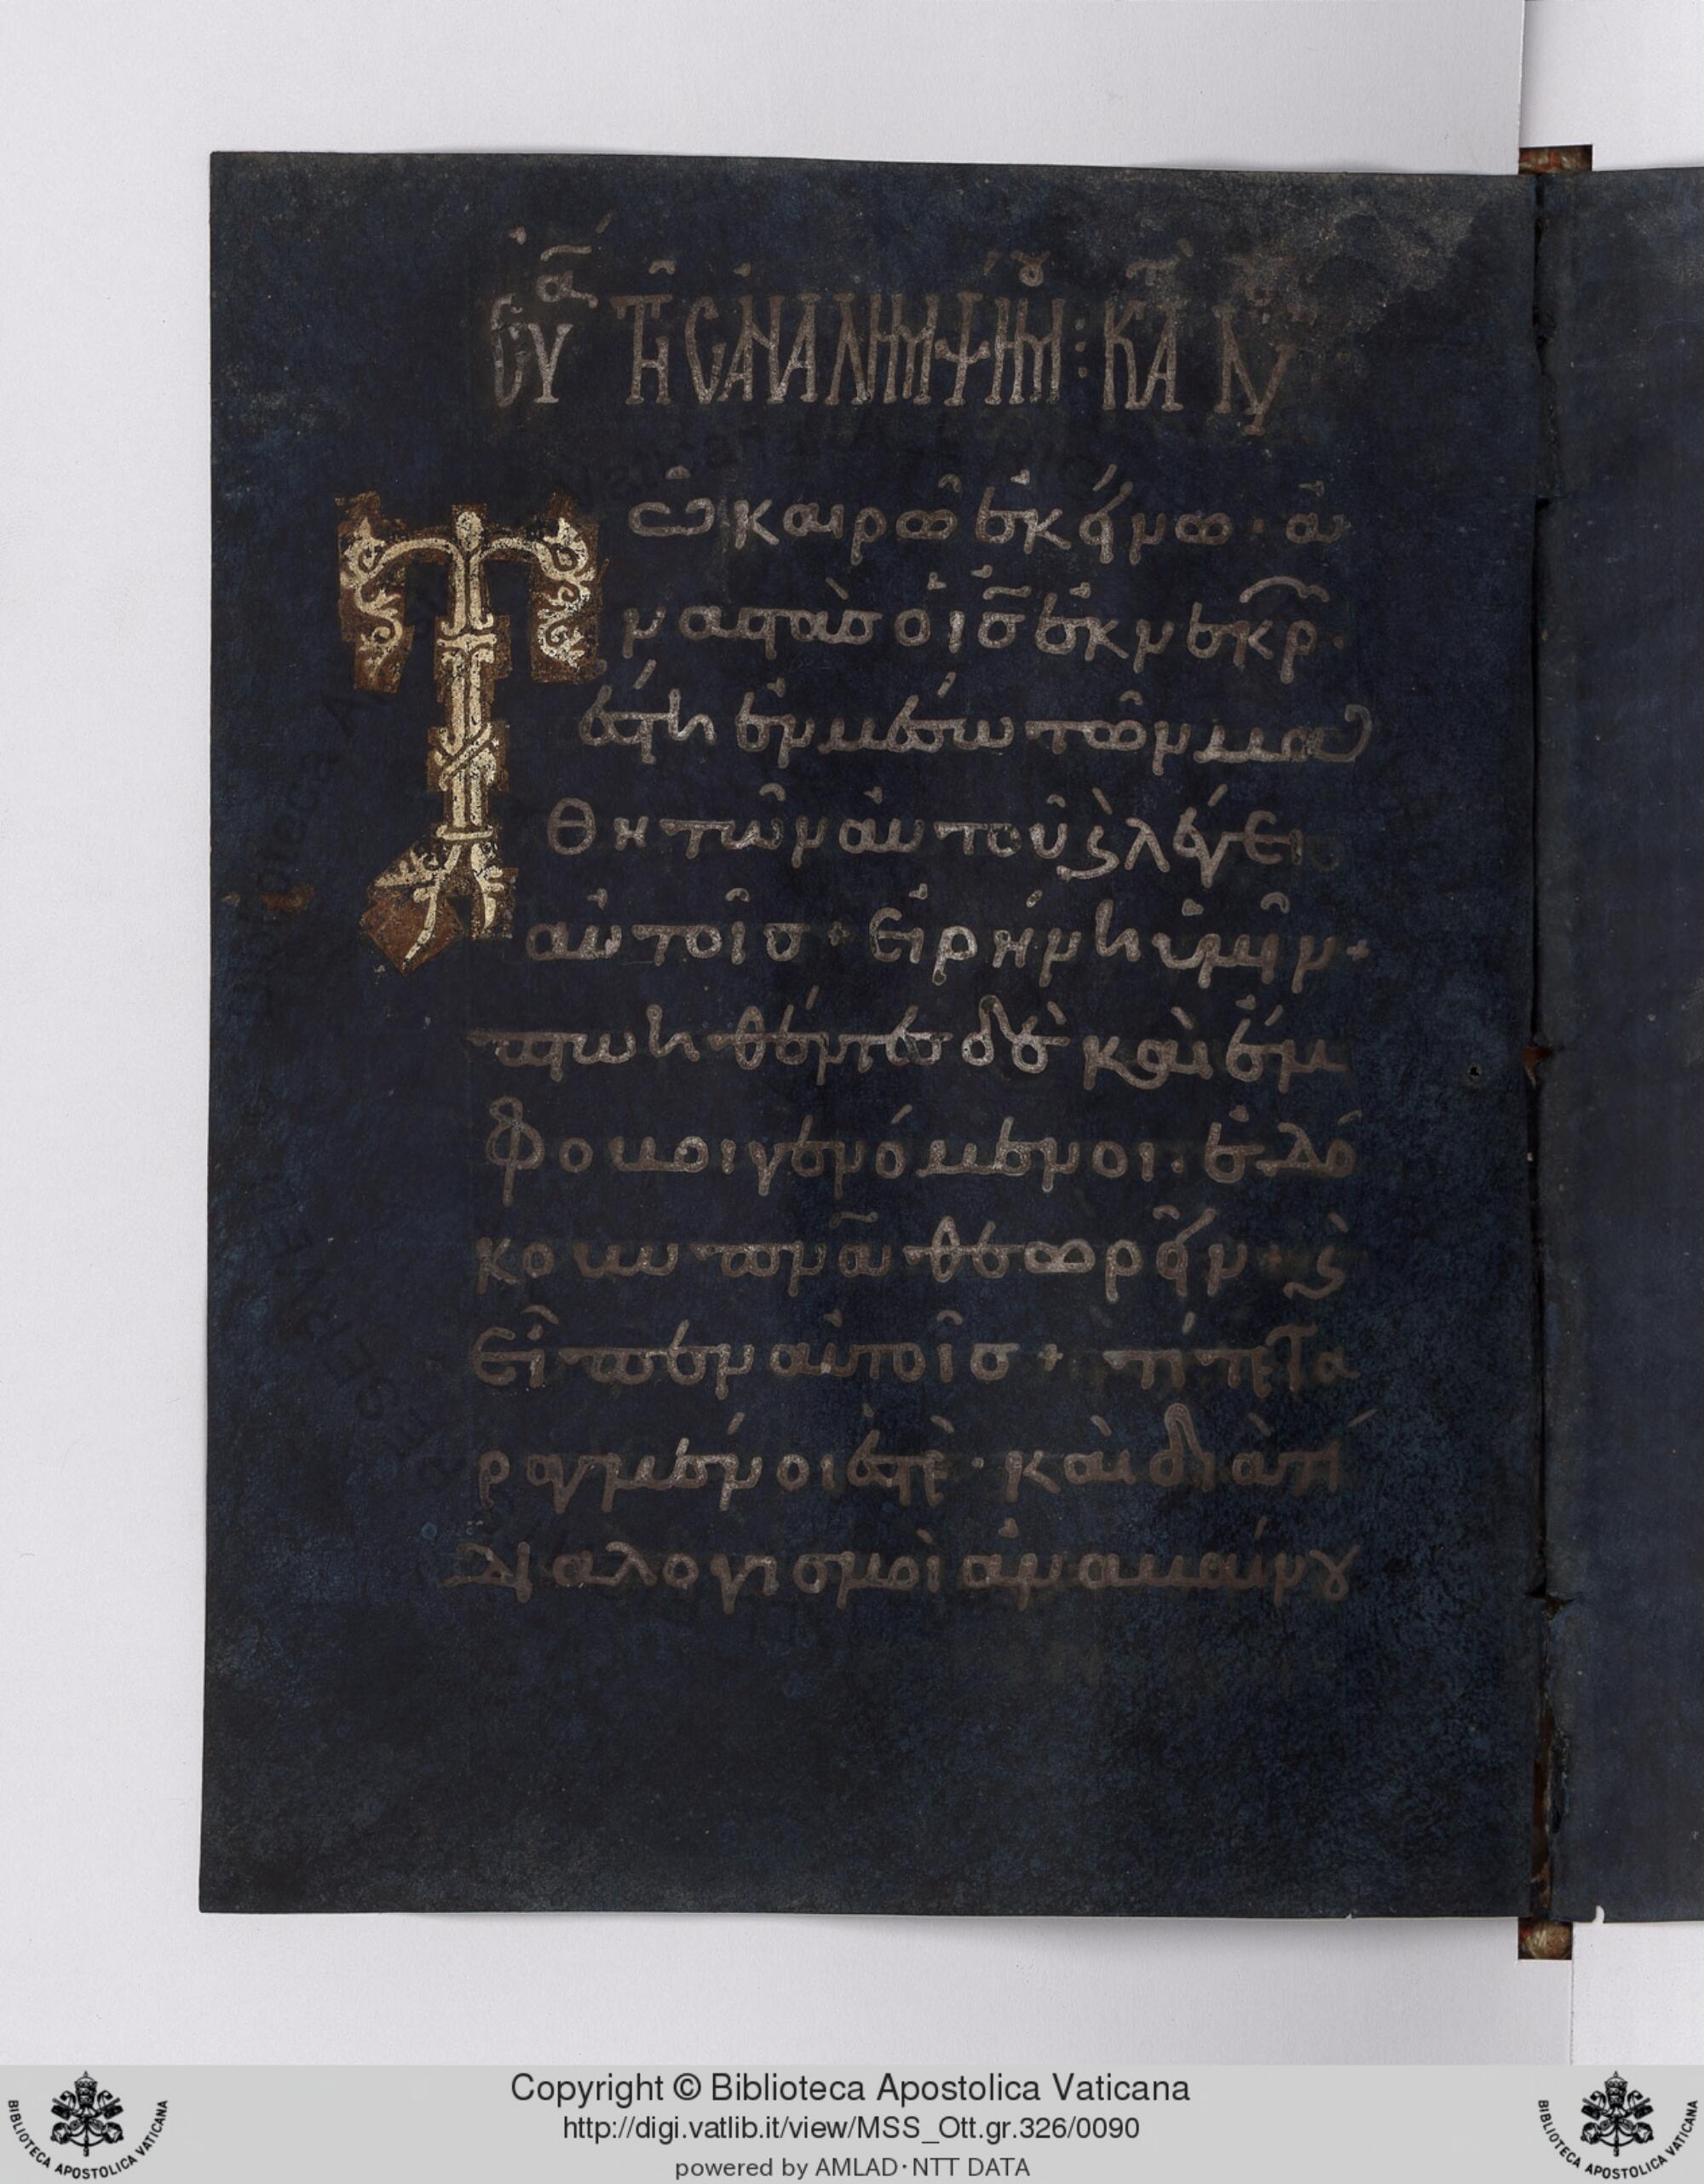 εὐα τῆς ἀναλήμψιμ: κα Λγ
Τῶ καιρῶ ἐκείνω · ἀ
ναστὰσ ὁ ι̅σ̅ ἐκ νεκρ·
ἔστη ἐν μέσω τῶν μα
θητῶν αὐτοῦ ϛ λέγει
αὐτοῖσ · εἰρήνη ὑμῖν·
πτωηθέντεσ δὲ καὶ ἔμ
φοβοι γενόμενοι · ἐδό
κουν π̅ν̅α̅ θεωρεῖν · ϛ
εἶπεν αὐτοῖσ · τί τετα
ραγμένοι ἐστὲ · καὶ διατί
διαλογισμοὶ ἀναβαίνου
Copyright © Biblioteca Apostolica Vaticana
http://digi.vatlib.it/view/MSS_Ott.gr.326/0090
powered by AMLAD·NTT DATA
BIBLIOTECA APOSTOLICA VATICANA
BIBLIOTECA APOSTOLICA VATICANA